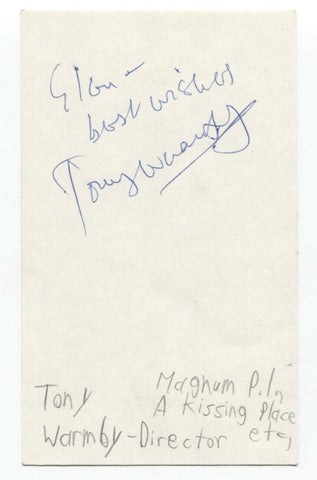 Glen -
best wishes
Tony Warmby
Magnum P.I.,
Tony A Kissing Place
Warmby-Director etc,